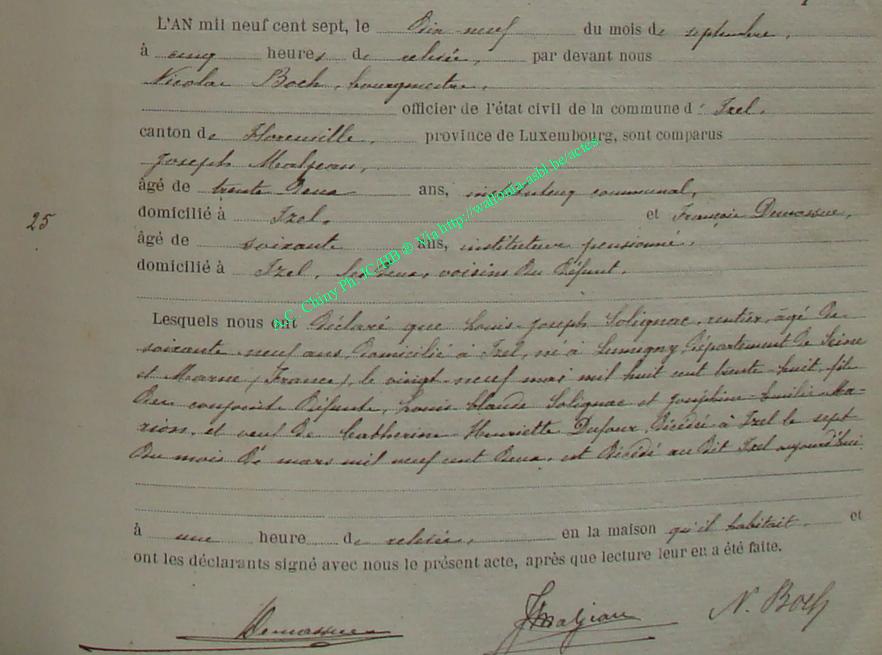 L'AN mil neuf cent sept, le Dix-neuf du mois de septembre,
à cinq heures de relevée, par devant nous
Nicolas Boch, bourgmestre,
officier de l'état civil de la commune d' Izel,
canton de Florenville, province de Luxembourg, sont comparus
Joseph Maljean,
âgé de trente Deux ans, instituteur communal,
domicilié à Izel, et François Demasure,
âgé de soixante ans, instituteur pensionné,
domicilié à Izel, les deux, voisins du Défunt.
25
Lesquels nous ont Déclaré que Louis-Joseph Solignac, rentier, âgé de
soixante-neuf ans, Domicilié à Izel, né à Lumigny, Département de Seine
et Marne (France), le vingt-neuf mai mil huit cent trente-huit, fils
Des conjoints Défunts, Louis-Claude Solignac et Joséphine-Emilie Ma-
rion, et veuf de Catherine-Henriette Dufour, Décédée à Izel le sept
Du mois de mars mil neuf cent Deux, est Décédé au Dit Izel aujourd'hui
à une heure de relevée, en la maison qu'il habitait. et
ont les déclarants signé avec nous le présent acte, après que lecture leur en a été faite.
JMaljean N. Boch
A.C. Chiny Ph. JC/HB @ Via http://wallonia-asbl.be/actes/